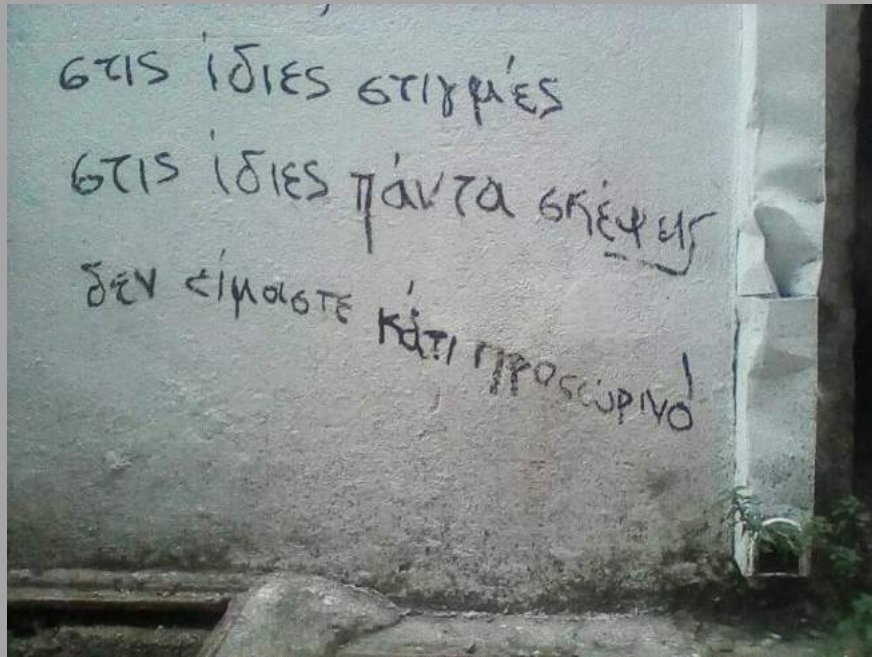 στις ίδιες στιγμιές
στις ίδιες πάντα σκέψεις
δεν είμαστε κάτι προσωρινό